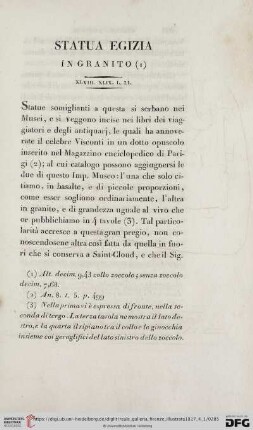 STATUA EGIZIA
IN GRANITO (1)
XLVIII. XLIX. L. LI.
Statue somiglianti a questa si serbano nei
Musei, e si veggono incise nei libri dei viag-
giatori e degli antiquarj, le quali ha annove-
rate il celebre Visconti in un dotto opuscolo
inserito nel Magazzino enciclopedico di Pari-
gi (2); al cui catalogo possono aggiugnersi le
due di questo Imp. Museo: l'una che solo ci-
tiamo, in basalte, e di piccole proporzioni,
come esser sogliono ordinariamente, l'altra
in granito, e di grandezza uguale al vivo che
or pubblichiamo in 4 tavole (3). Tal partico-
larità accresce a questa gran pregio, non co-
noscendosene altra così fatta da quella in fuo-
ri che si conserva a Saint-Cloud, e che il Sig.
(1) Alt. decim. 9,43 collo zoccolo; senza zoccolo
decim.
(2) An. 8. t. 5. p. 499
(3) Nella prima vi è espressa di fronte, nella se-
conda di tergo. La terza tavola ne mostra il lato de-
stro, e la quarta il ripiano tra il collo e le ginocchia
insieme coi geroglifici del lato sinistro dello zoccolo.
UNIVERSITÄTS-
BIBLIOTHEK
HEIDELBERG
DFG